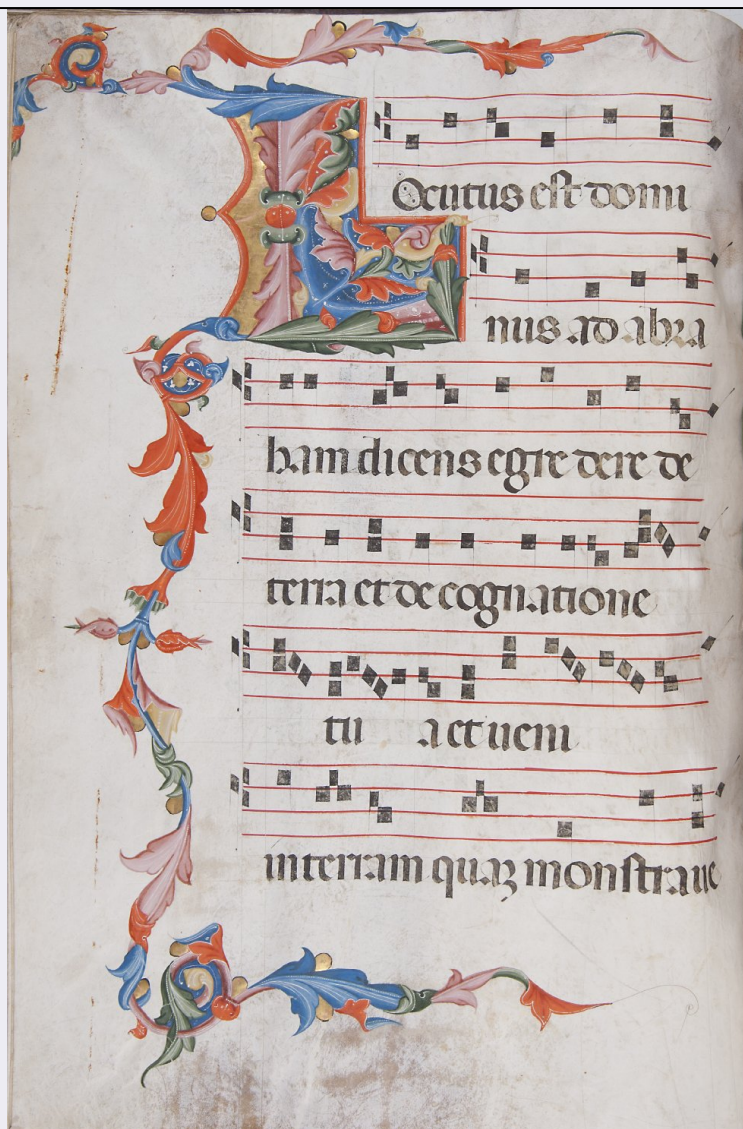 Locutus est domi
nus ad abra
ham dicens egredere de
terra et de cognatione
tu a et ueni
in terram quaꝫ monstraue